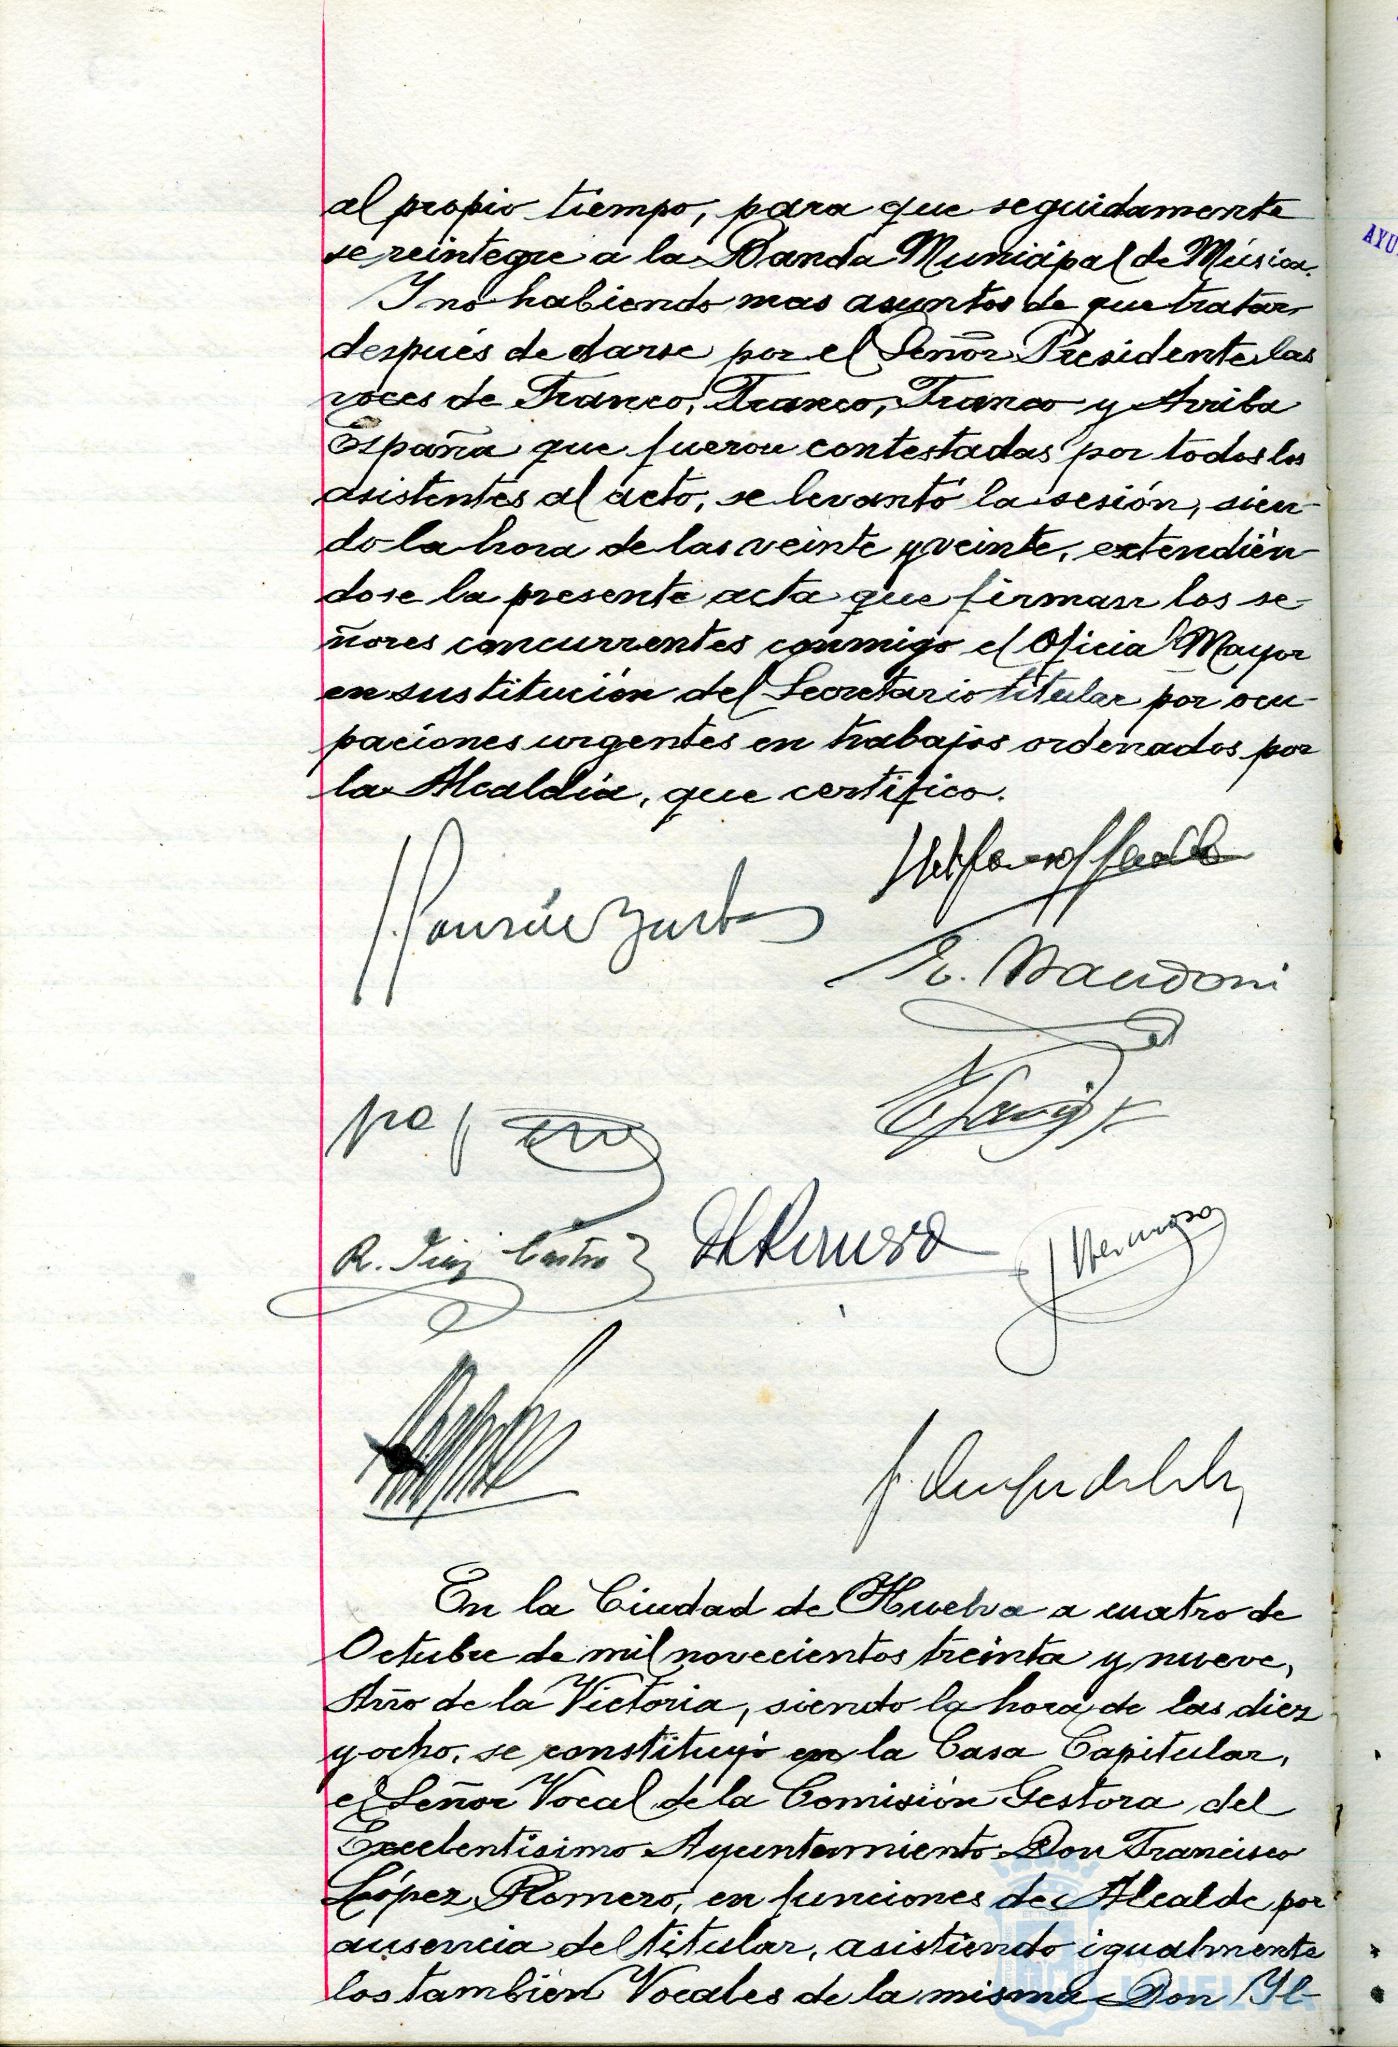 al propio tiempo, para que seguidamente
se reintegre a la Banda Municipal de Música.
Y no habiendo mas asuntos de que tratar
después de darse por el Señor Presidente las
voces de Franco, Franco, Franco y Arriba
España que fueron contestadas por todos los
asistentes al acto, se levantó la sesión, sien-
do la hora de las veinte y veinte, extendién-
dose la presente acta que firman los se-
ñores concurrentes conmigo el Oficial Mayor
en sustitución del Secretario titular por ocu-
paciones urgentes en trabajos ordenados por
la Alcaldía, que certifico.
R. Diaz Castro
J Hermoso
En la Ciudad de Huelva a cuatro de
Octubre de mil novecientos treinta y nueve,
Año de la Victoria, siendo la hora de las diez
y ocho, se constituyó en la Casa Capitular,
el Señor Vocal de la Comisión Gestora del
Excelentísimo Ayuntamiento Don Francisco
López Romero, en funciones de Alcalde por
ausencia del titular, asistiendo igualmente
los también Vocales de la misma Don Yl-
HUELVA
AYU